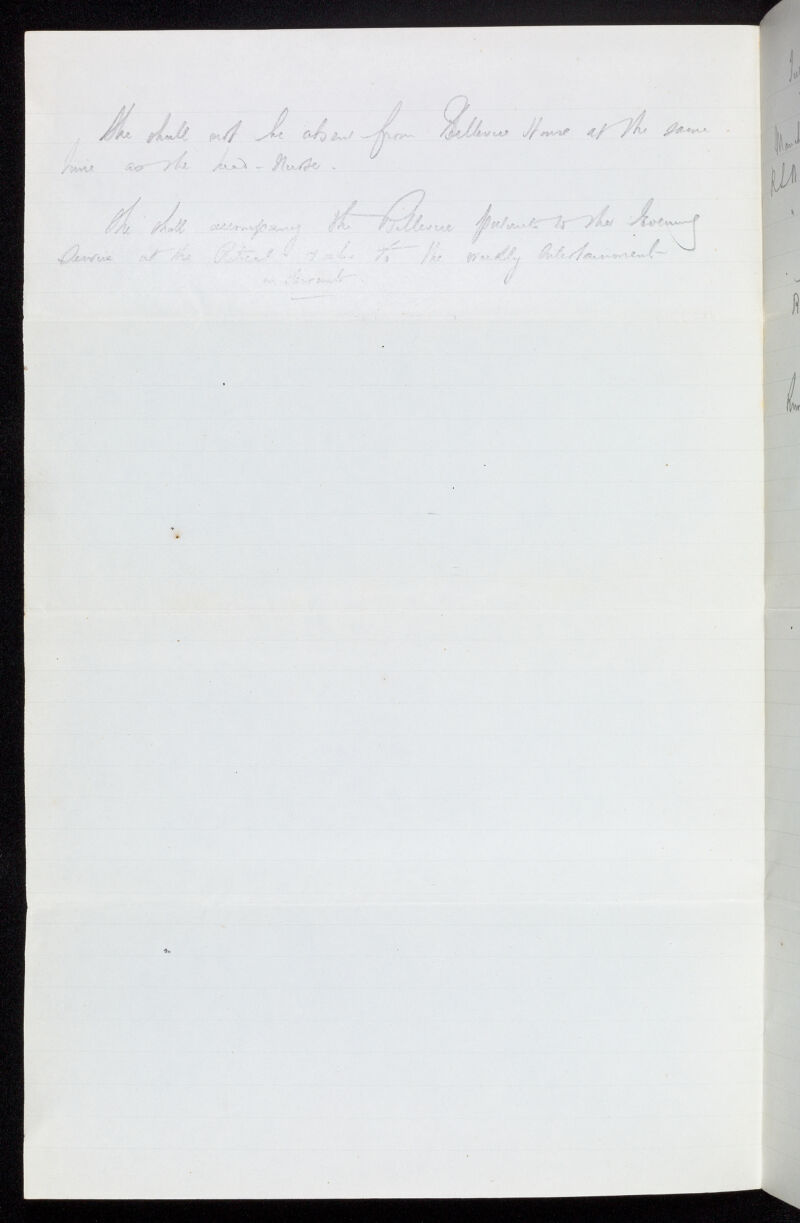 She shall not be absent from Bellevue House at the same
time as the head-Nurse.
She shall accompany the Bellevue patients to the Evening
Service at the Retreat & also to the weekly Entertainment